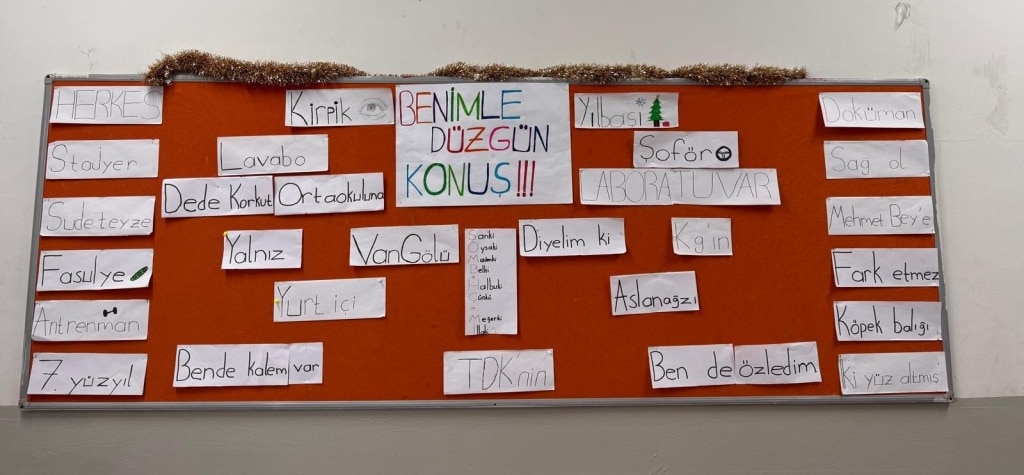 HERKES
Stajyer
Sude teyze
Fasulye
Antrenman
7. yüzyıl
Kirpik
Lavabo
Dede Korkut Ortaokuluna
Yalnız
VanGölü
Yurt içi
Bende kalem var
BENİMLE
DÜZGÜN
KONUŞ!!!
Sanki
Oysaki
Mademki
Belki
A
Halbuki
Çünkü
E
Meğerki
İllaki
TDK'nin
Yılbaşı
Şoför
LABORATUVAR
Diyelim ki
Kg'ın
Aslanağzı
Ben de özledim
Doküman
Sağ ol
Mehmet Bey'e
Fark etmez
Köpek balığı
Ki yüz altmış